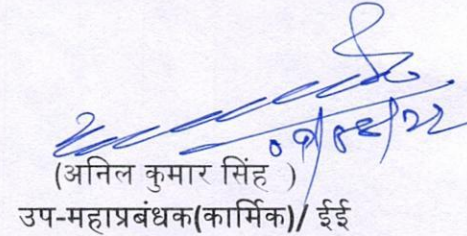 (अनिल कुमार सिंह )
उप-महाप्रबंधक(कार्मिक)/ ईई